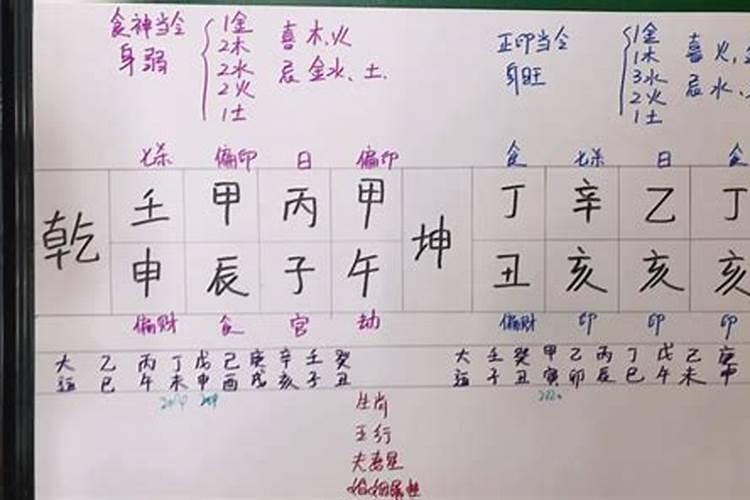 食神当令
身弱
1金
2木
2水
2火
1土
喜 木、火
忌 金水、土.
正印当令
身旺
1金
1木
3水
2火
1土
喜 火、
忌 水、
七杀 偏印 日 偏印
食 七杀 日 食
乾 壬 甲 丙 甲
申 辰 子 午
坤 丁 辛 乙 丁
丑 亥 亥 亥
偏财 食 官 劫
偏财 印 印 印
大 乙 丙 丁 戊 己 庚 辛 壬 癸
运 巳 午 未 申 酉 戌 亥 子 丑
大 壬 癸 甲 乙 丙 丁 戊 己 庚
运 子 丑 寅 卯 辰 巳 午 未 申
生肖
五行
夫妻星